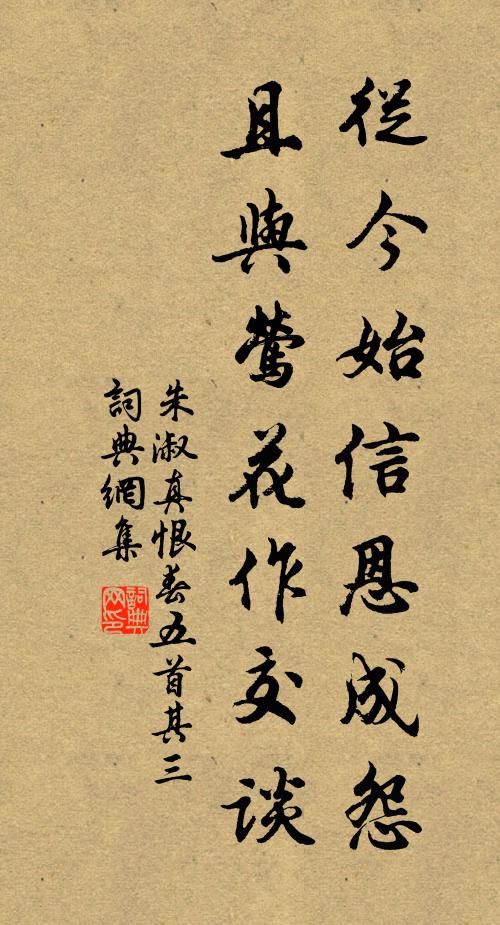 從今始信恩成怨
且與鶯花作交談
朱淑真恨春五首其三
詞典網集
詞典
网印